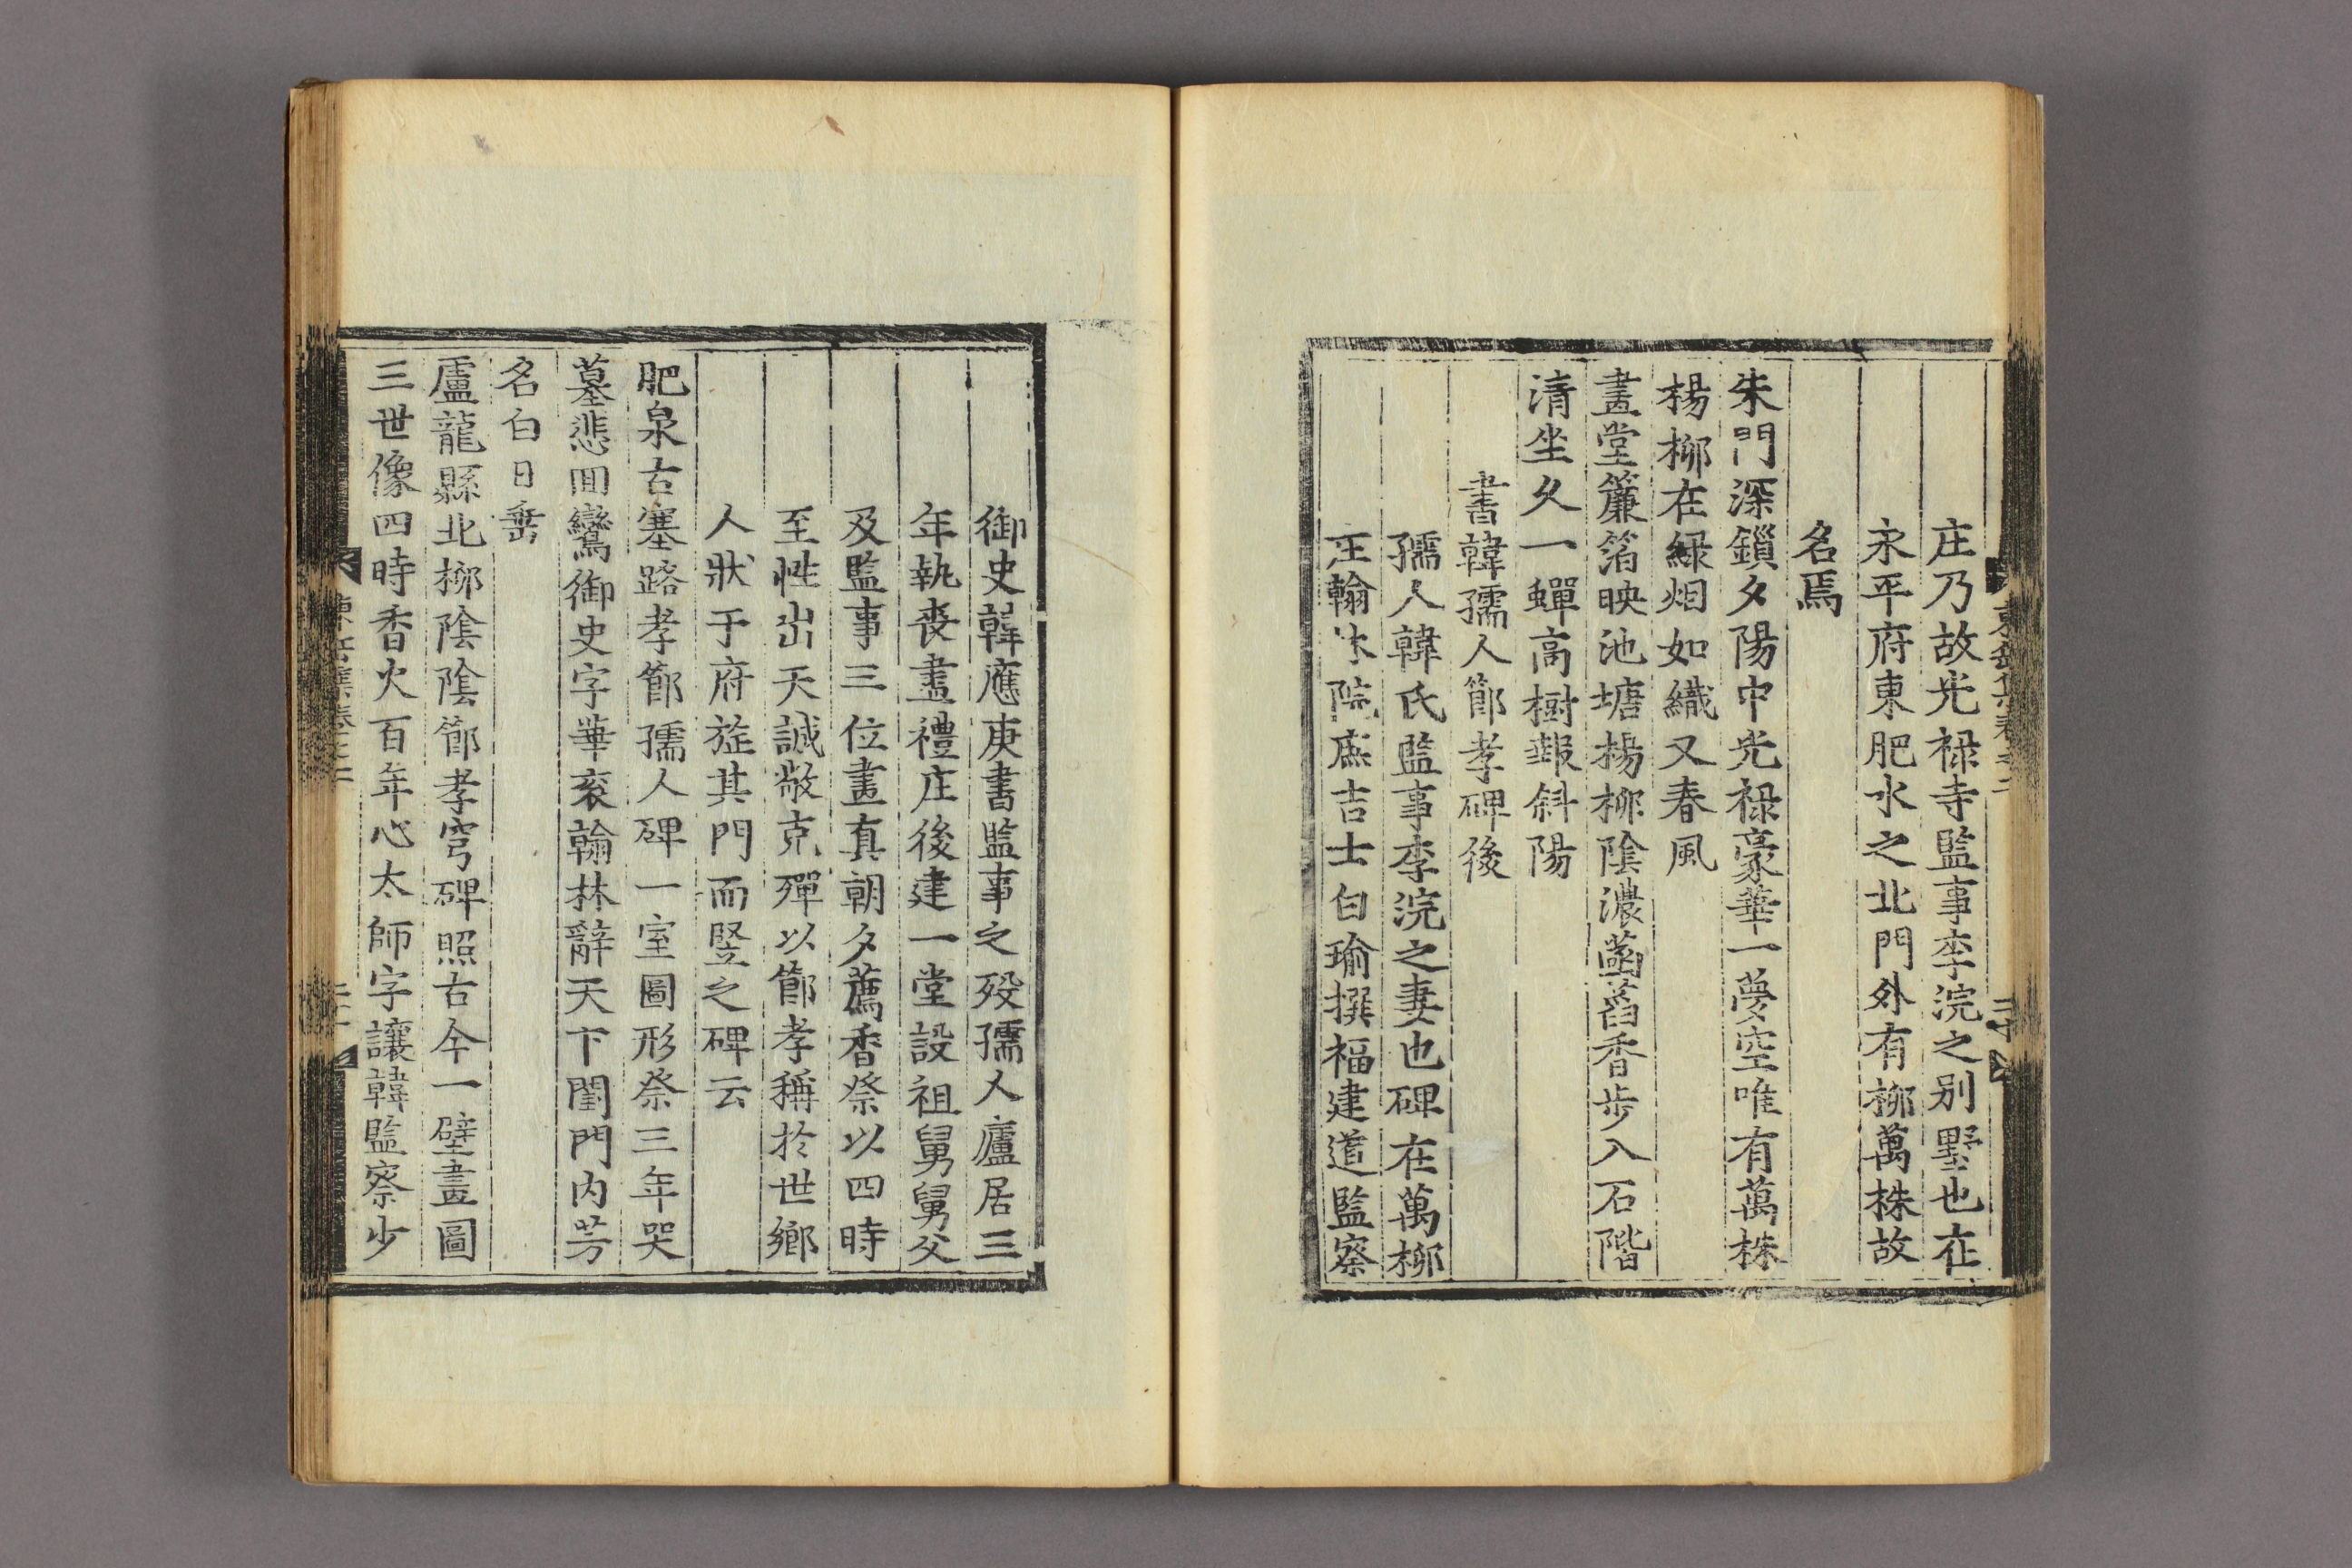 庄乃故光禄寺監事李浣之别墅也在
永平府東肥水之北門外有柳萬株故
名焉
朱門深鎖夕陽中光禄豪華一夢空唯有萬株
楊柳在緑烟如織又春風
畫堂簾箔映池塘楊柳陰濃菡萏香步入石階
清坐久一蟬高樹報斜陽
書韓孺人節孝碑後
孺人韓氏監事李浣之妻也碑在萬柳
庄翰林院庶吉士白瑜撰福建道監察
御史韓應庚書監事之歿孺人廬居三
年執喪盡禮庄後建一堂設祖舅舅父
及監事三位畫真朝夕薦香祭以四時
至性出天誠敬克殫以節孝稱於世鄉
人狀于府旌其門而竪之碑云
肥泉古塞路孝節孺人碑一室圖形祭三年哭
墓悲囬鸞御史字華衮翰林辭天下閨門内芳
名白日垂
盧龍縣北柳陰陰節孝穹碑照古今一壁畫圖
三世像四時香火百年心太師字讓韓監察少
東岳集卷之二